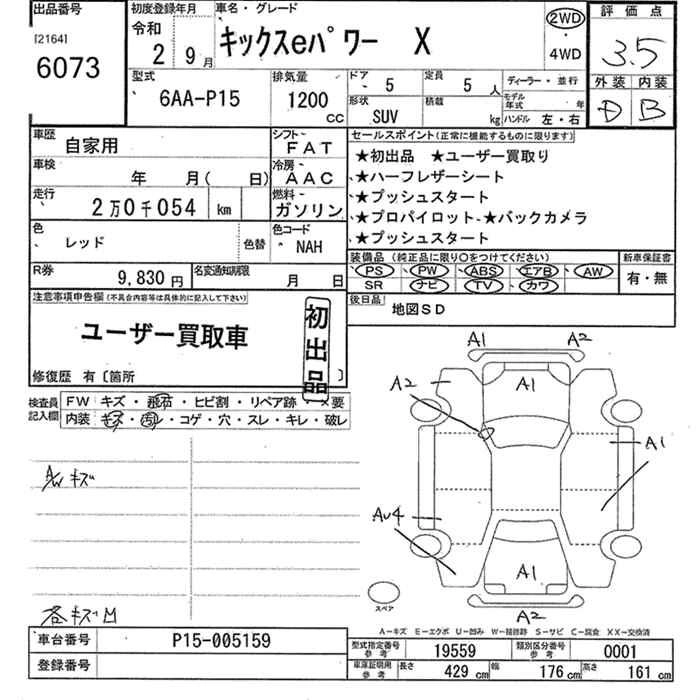 出品番号 初度登録年月 車名・グレード 評価点
[2164] 令和 キックスeパワー X 2WD ・ 4WD 3.5
6073 2 9月
型式 排気量 ドア 5 定員 5人 ディーラー・並行 外装 内装
6AA-P15 1200cc 形状 SUV 積載 kg モデル年式 年 D B
ハンドル 左・右
車歴 自家用 シフト FAT セールスポイント(正常に機能するものに限ります)
車検 年 月( 日) 冷房 AAC ★初出品 ★ユーザー買取り
★ハーフレザーシート
走行 2万0千054 km 燃料 ガソリン ★プッシュスタート
★プロパイロット ★バックカメラ
色 レッド 色替 色コード NAH ★プッシュスタート
装備品(純正品に限り○をつけてください) 新車保証書
R券 9,830円 名変通知期限 月 日 PS PW ABS エアB AW 有・無
SR ナビ TV カワ
注意事項申告欄(不具合内容等は具体的に記入して下さい) 後日品 地図SD
ユーザー買取車 初出品
修復歴 有〔箇所 〕
検査員記入欄 FW キズ・飛石・ヒビ割・リペア跡・×要
内装 キズ・コゲ・穴・スレ・キレ・破レ
A/W キズ
各キズM
A1 A2
A2 A1
A1
Au4
A1
スペア A2
A-キズ E-エクボ U-凹み W-補修跡 S-サビ C-腐食 XX-交換済
車台番号 P15-005159 型式指定番号 参考 19559 類別区分番号 参考 0001
登録番号 車庫証明用参考 長さ 429cm 幅 176cm 高さ 161cm